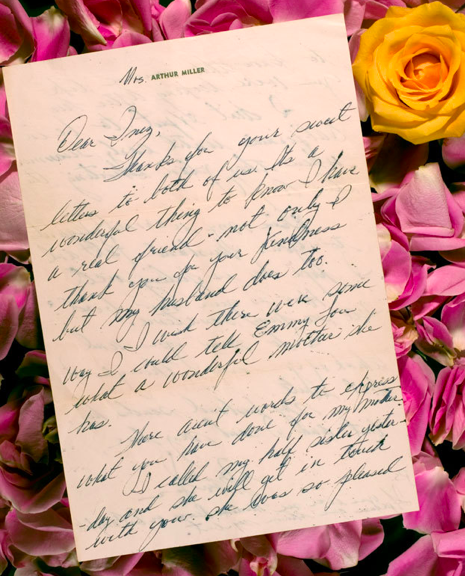 Mrs. ARTHUR MILLER
Dear Inez,
Thanks for your sweet
letters to both of us. It's a
wonderful thing to know I have
a real friend - not only I
thank you for your kindness
but my husband does too.
I wish there were some
way I could tell Emmy Lou
what a wonderful mother she
has.
There aren't words to express
what you have done for my mother.
I called my half sister yester-
-day and she will get in touch
with you. she was so pleased